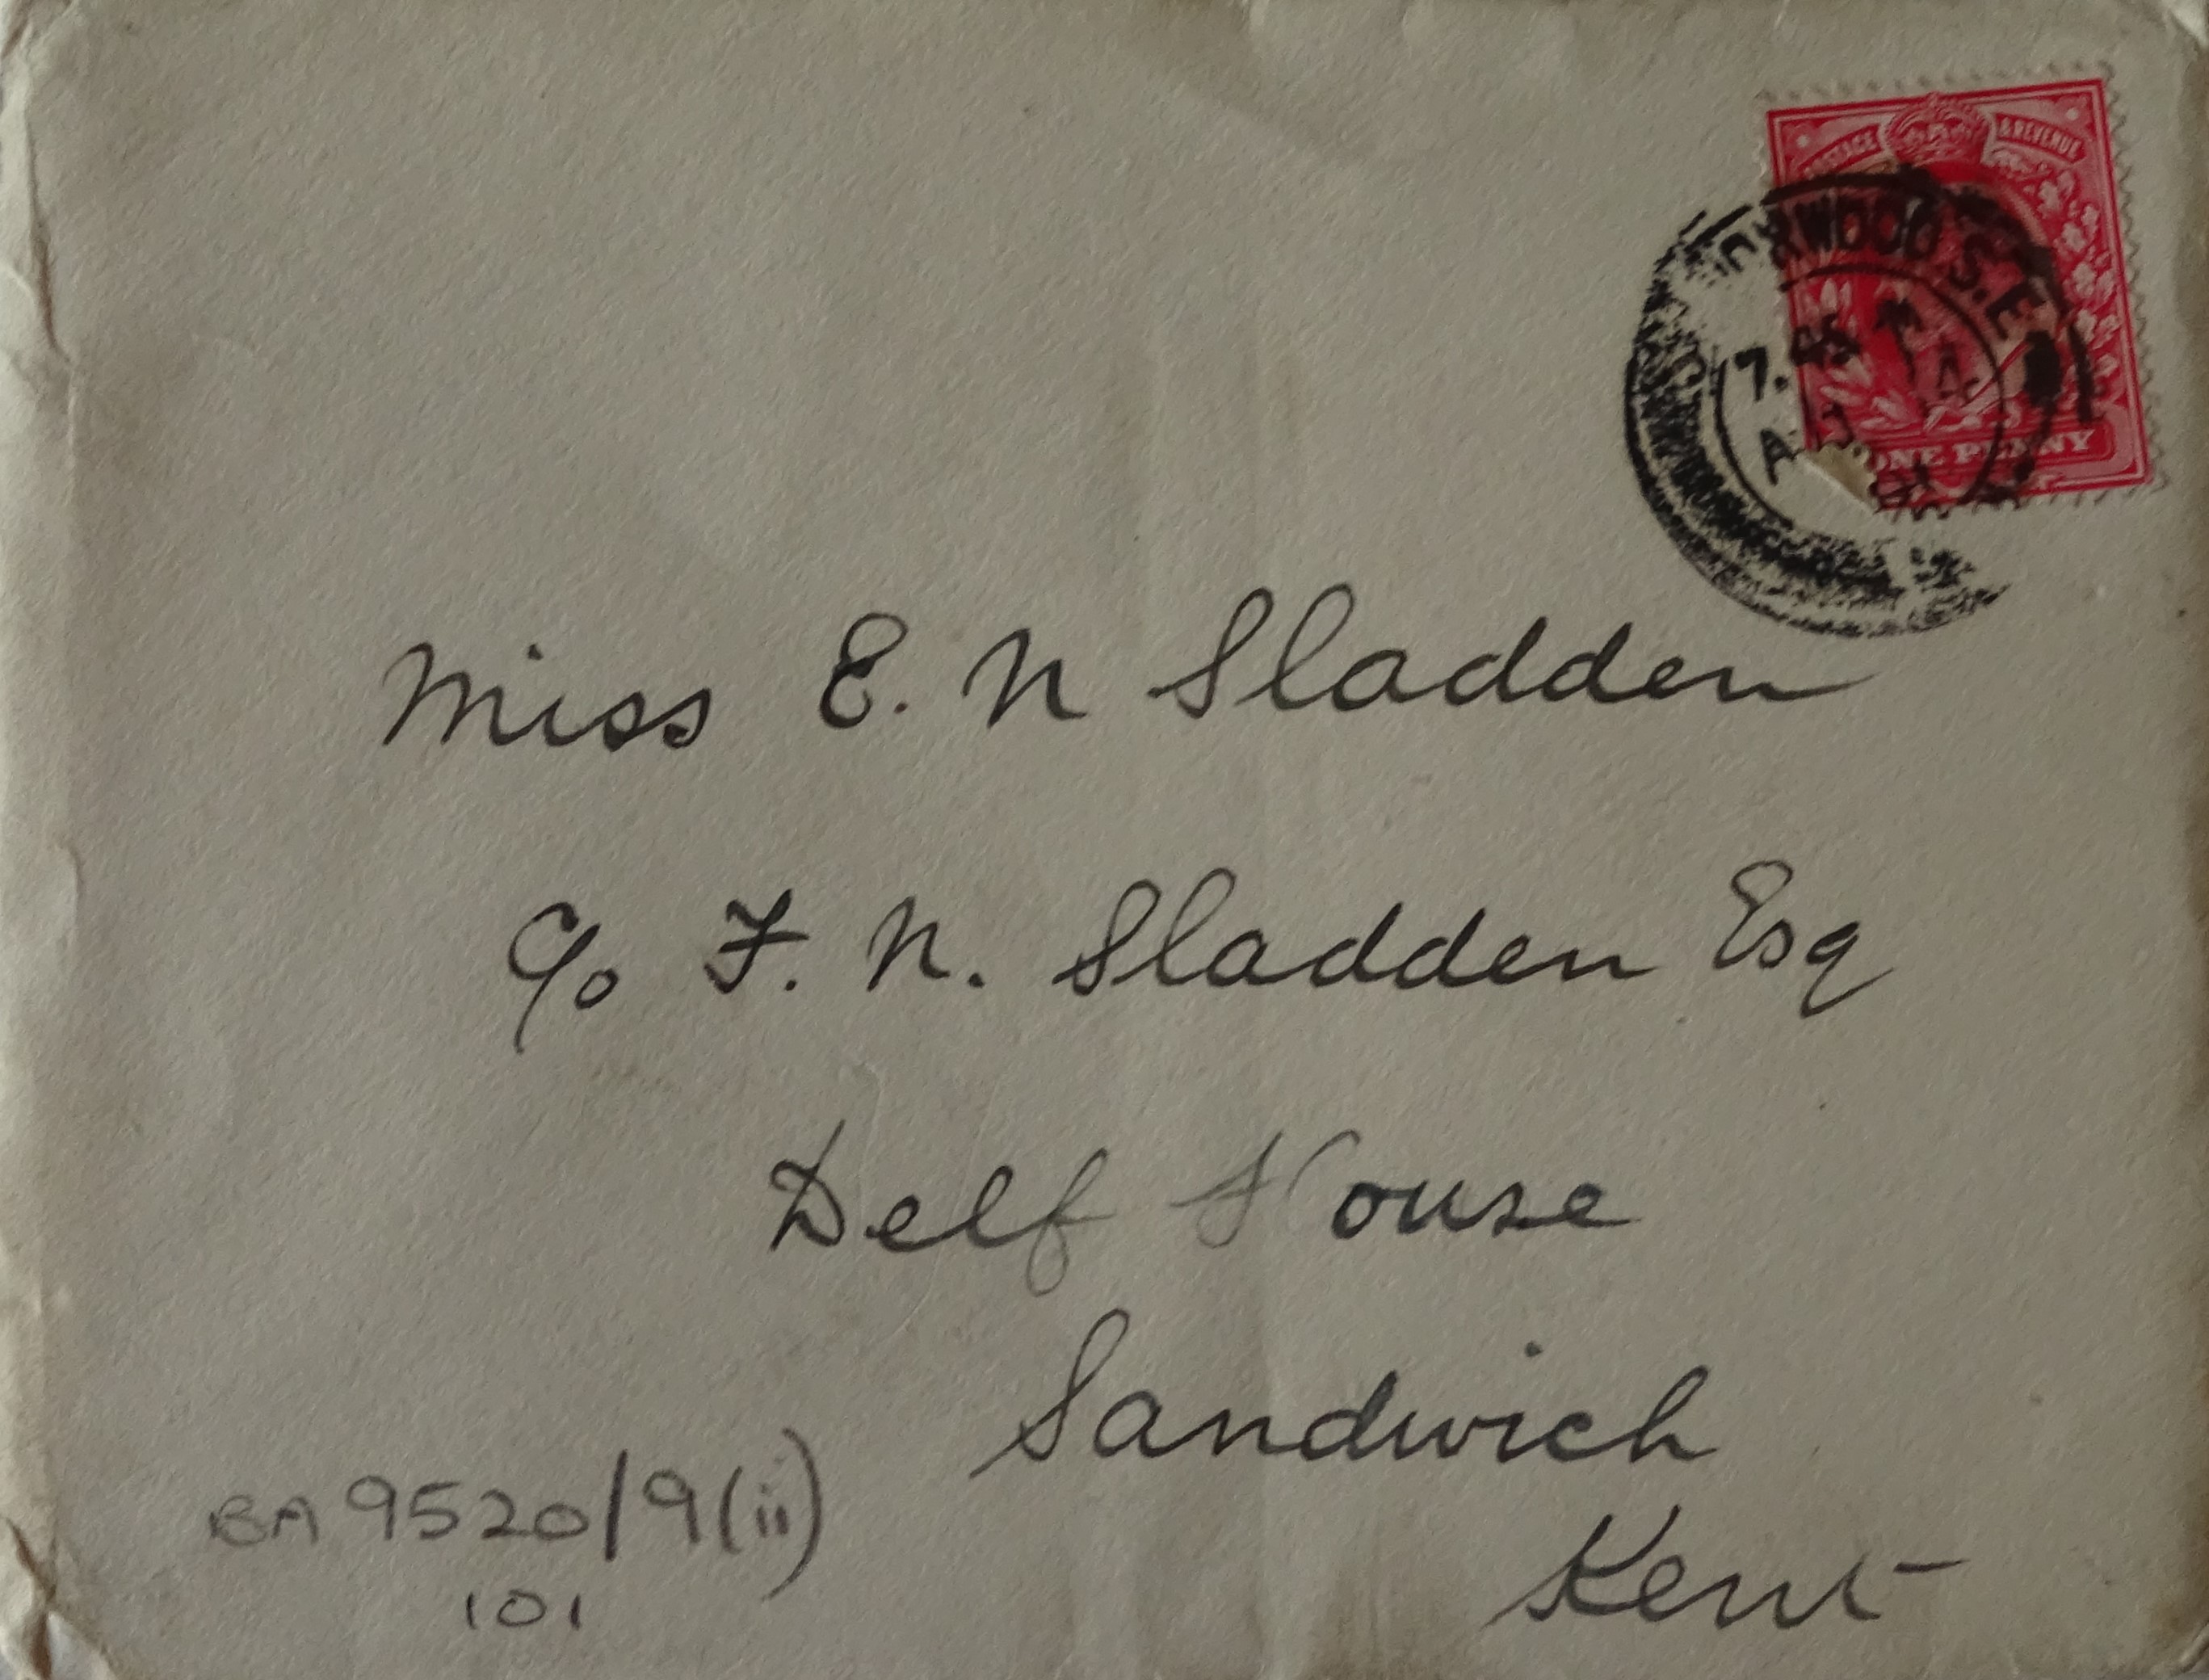 POSTAGE & REVENUE
ORWOOD.S.E
7.45
ONE PENNY
Miss E. N Sladden
c/o F. N. Sladden Esq
Delf House
Sandwich
Kent
BA 9520/9(ii)
101